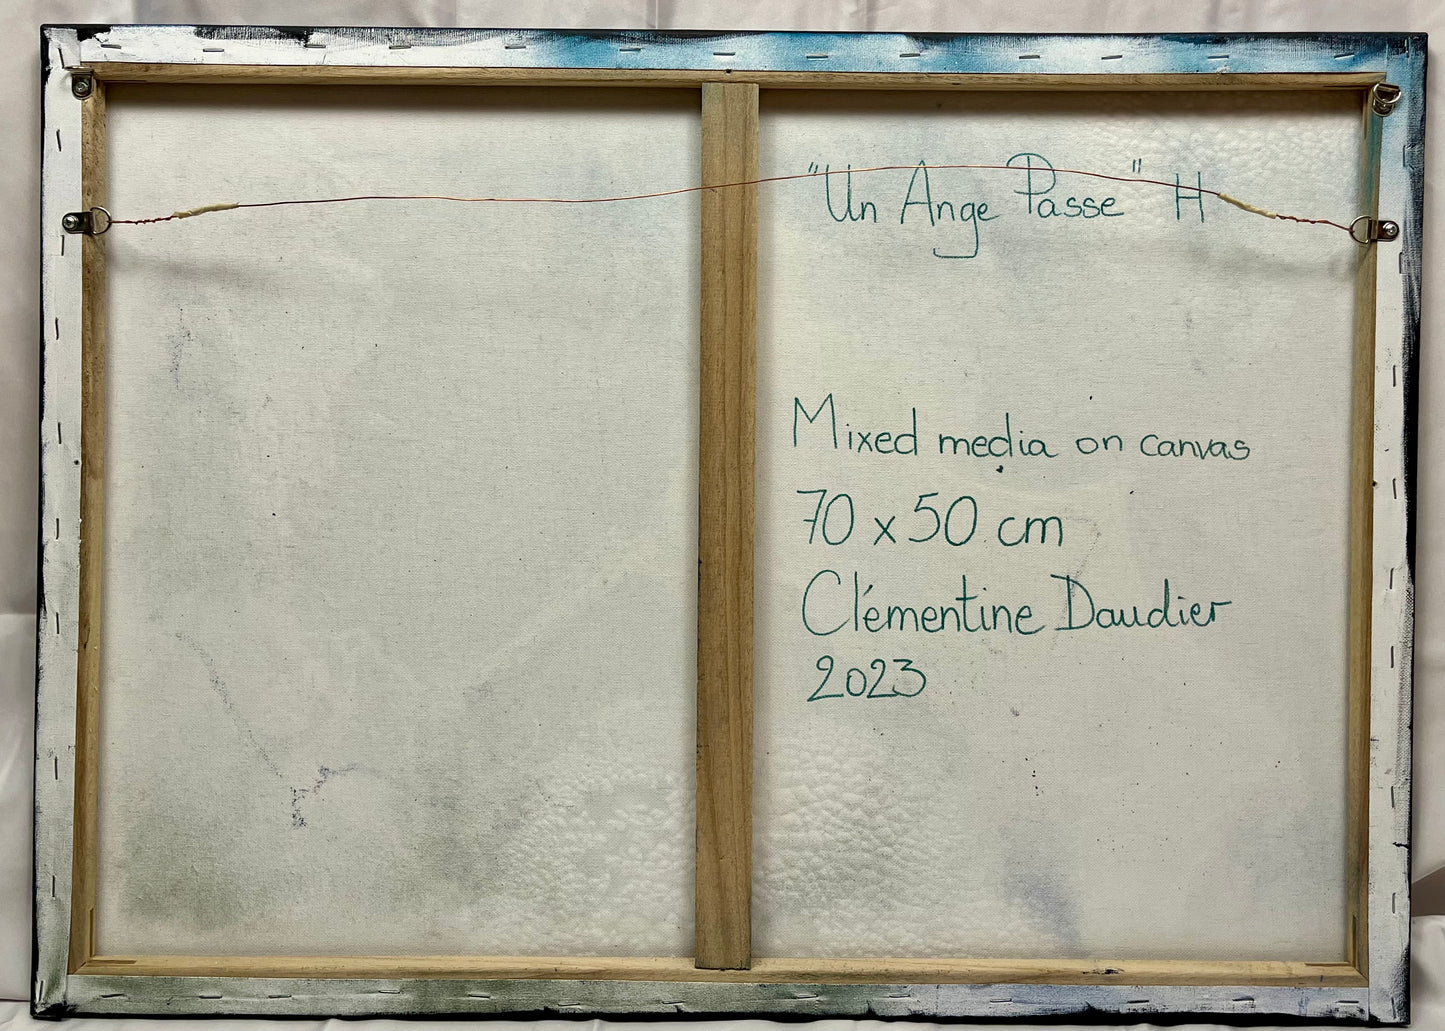 "Un Ange Passe" H
Mixed media on canvas
70 x 50 cm
Clémentine Daudier
2023